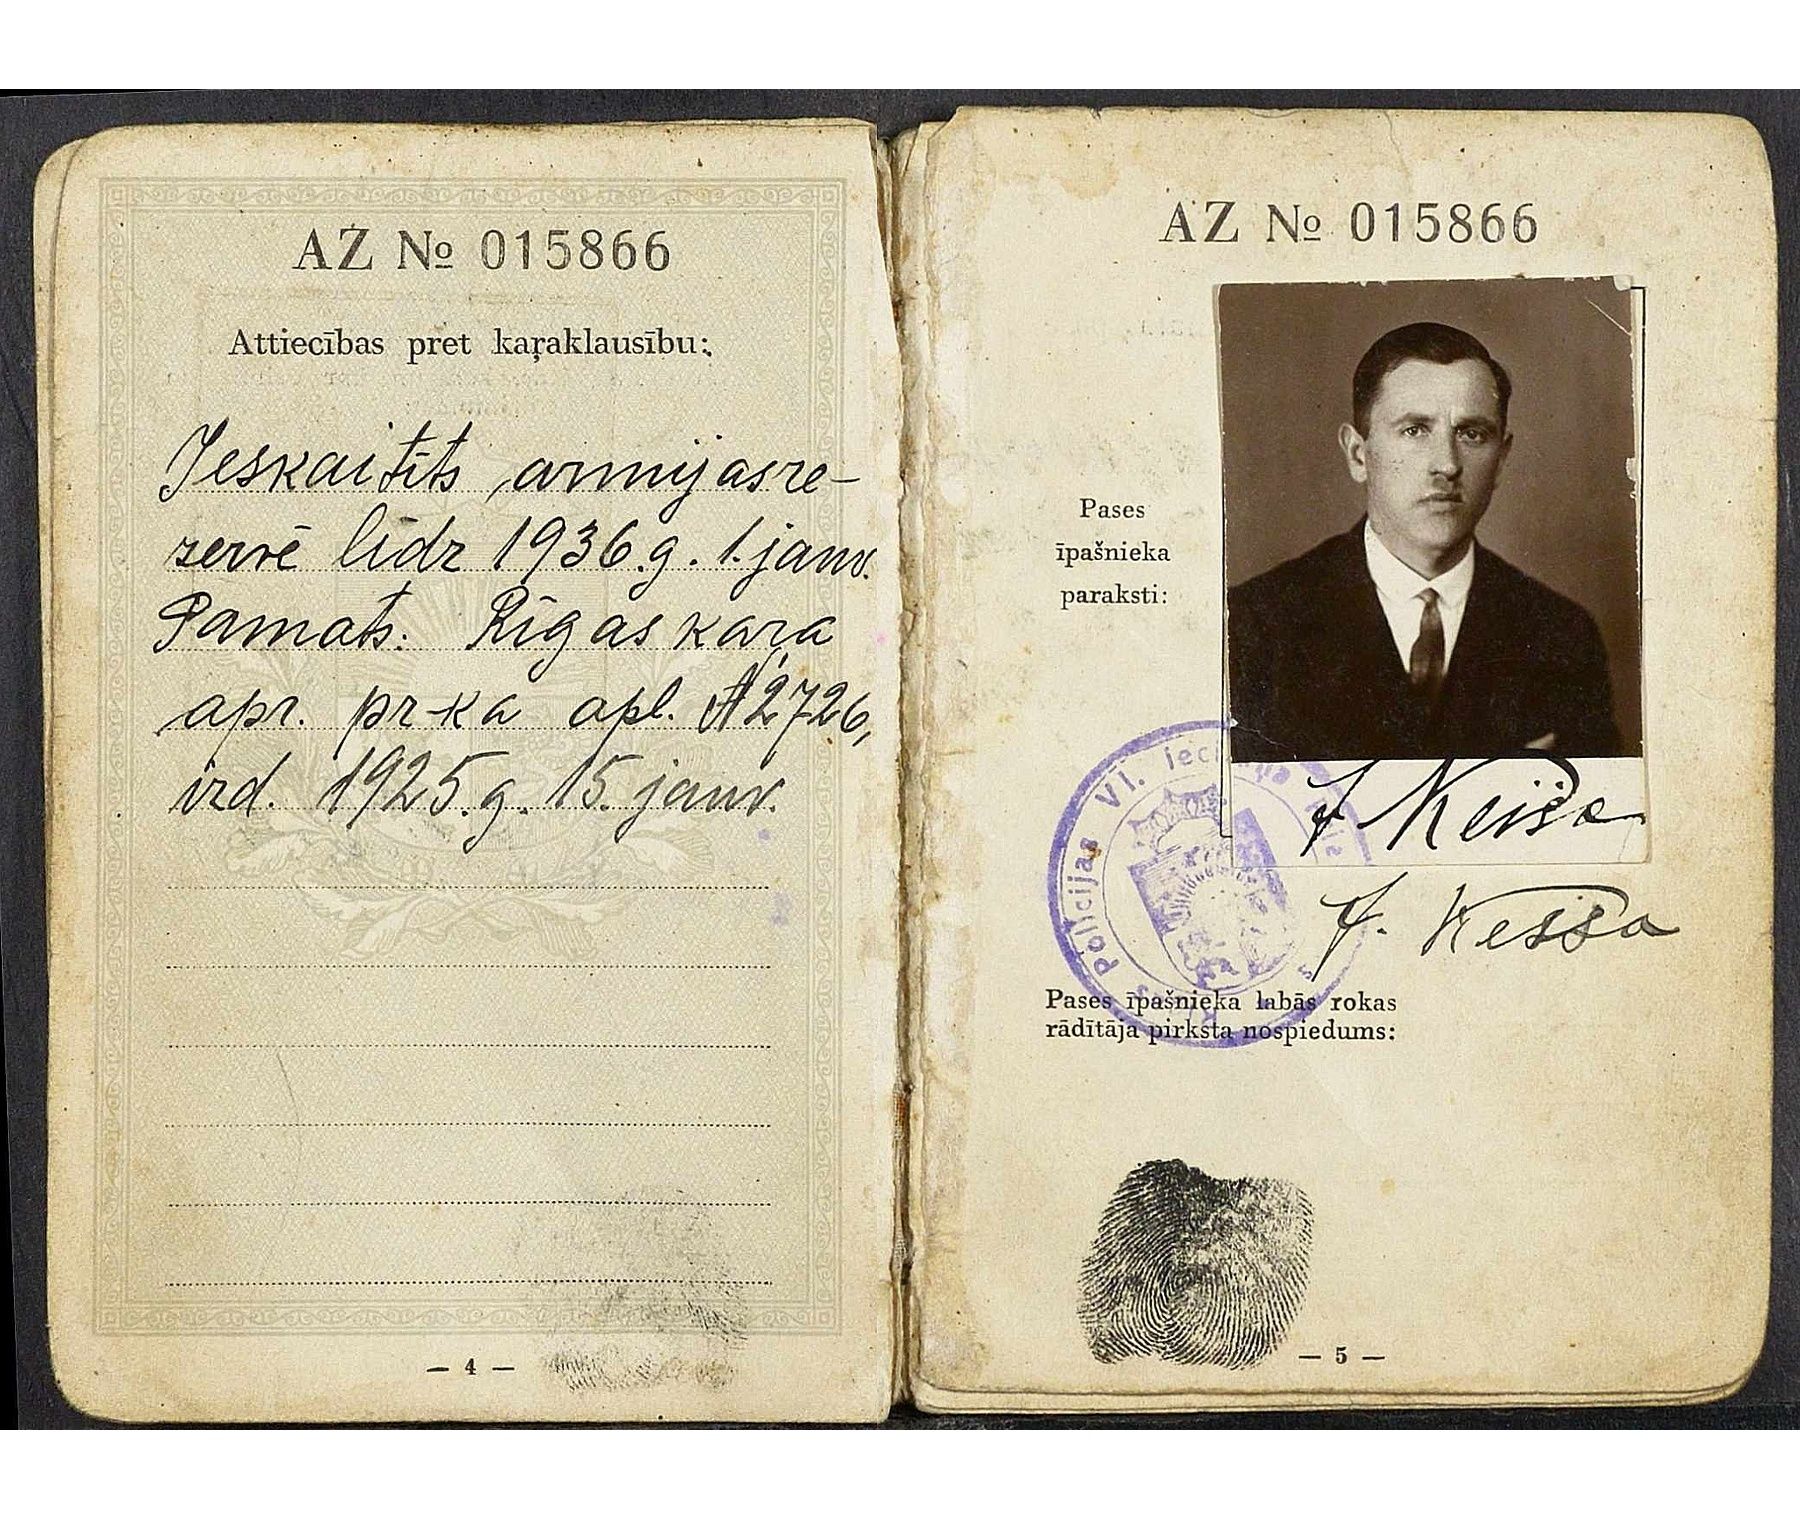 AŽ № 015866
Attiecības pret kaŗaklausību:
Ieskaitīts armijas re-
zervē līdz 1936.g. 1. janv.
Pamats: Rīgas kara
apr. pr-ka apl. № 2726,
izd. 1925.g. 15. janv.
— 4 —
AZ № 015866
Pases
īpašnieka
paraksti:
Policijas VI. iecirkņa
J. Keiša
J. Keiša
Pases īpašnieka labās rokas
rādītāja pirksta nospiedums:
— 5 —